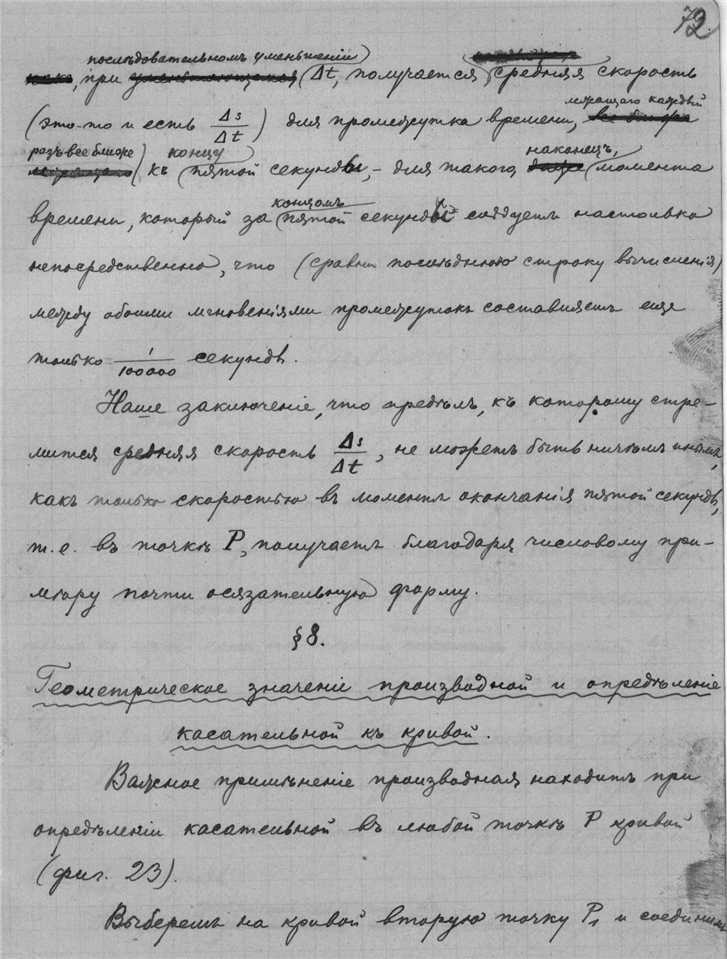 72.
последовательномъ уменьшеніи
при Δt, получается средняя скорость
(это-то и есть Δs/Δt) для промежутка времени,
лежащаго каждый
разъ все ближе концу наконецъ,
къ пятой секунды, - для такого момента
концомъ
времени, который за пятой секунды слѣдуетъ настолько
непосредственно, что (сравни послѣднюю строку вычисленія)
между обоими мгновеніями промежутокъ составляетъ еще
только 1/100000 секунды.
Наше заключеніе, что предѣлъ, къ которому стре-
мится средняя скорость Δs/Δt, не можетъ быть ничѣмъ инымъ,
какъ только скоростью въ моментъ окончанія пятой секунды,
т.е. въ точкѣ P, получаетъ благодаря числовому при-
мѣру почти осязательную форму.
§8.
Геометрическое значеніе производной и опредѣленіе
касательной къ кривой.
Важное примѣненіе производная находитъ при
опредѣленіи касательной въ любой точкѣ P кривой
(фиг. 23).
Выберемъ на кривой вторую точку P₁ и соединимъ